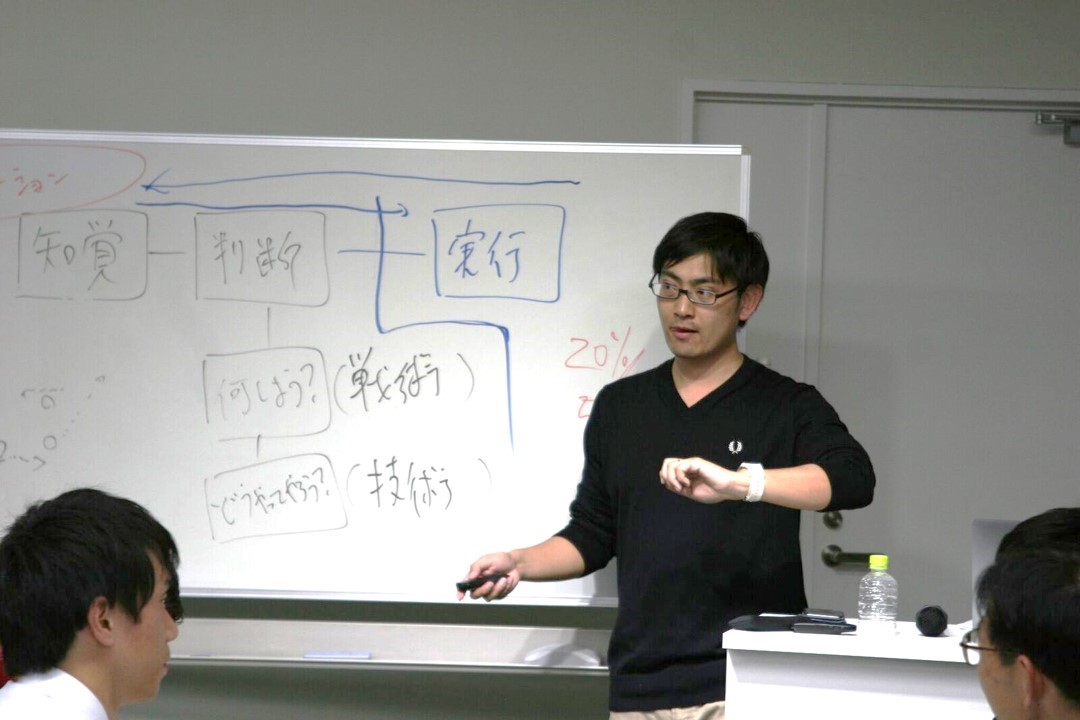 ーション
知覚 判断 実行
何しよう? (戦術)
20%
どうやってやろう? (技術)